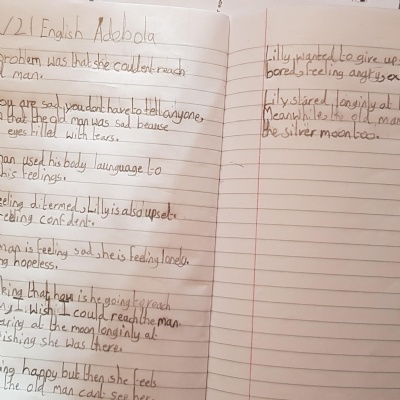 /21 English Adebola
problem was that she couldent reach
man.
ou are sad, you dont have to tell anyone,
that the old man was sad becuase
eyes filled with tears.
man used his body launguage to
his feelings.
eeling ditermed, Lilly is also upset.
eeling confident.
man is feeling sad, she is feeling lonely.
ng hopeless.
king that how is he going to reach
my I. Wish I could reach the man.
aring at the moon longinly at
ishing she was there.
ing happy but then she feels
the old man cant see her
Lilly wanted to give up
bored, feeling angry, a
Lily stared longinly at
Meanwhile, the old man
the silver moon too.